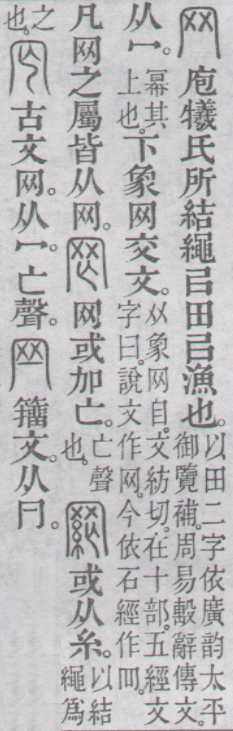 网 庖犧氏所結繩㠯田㠯漁也。以田二字依廣韵太平御覽補。周易毄辭傳文。
从冖。冪其上也。下象网交文。㸚象网自。文紡切。在十部。五經文字曰。說文作网。今依石經作罒。
凡网之屬皆从网。罔 网或加亡。亡聲也。䋞 或从糸。以結繩爲
之也。𦉸 古文网。从冖亡聲。𦉪 籒文。从冃。